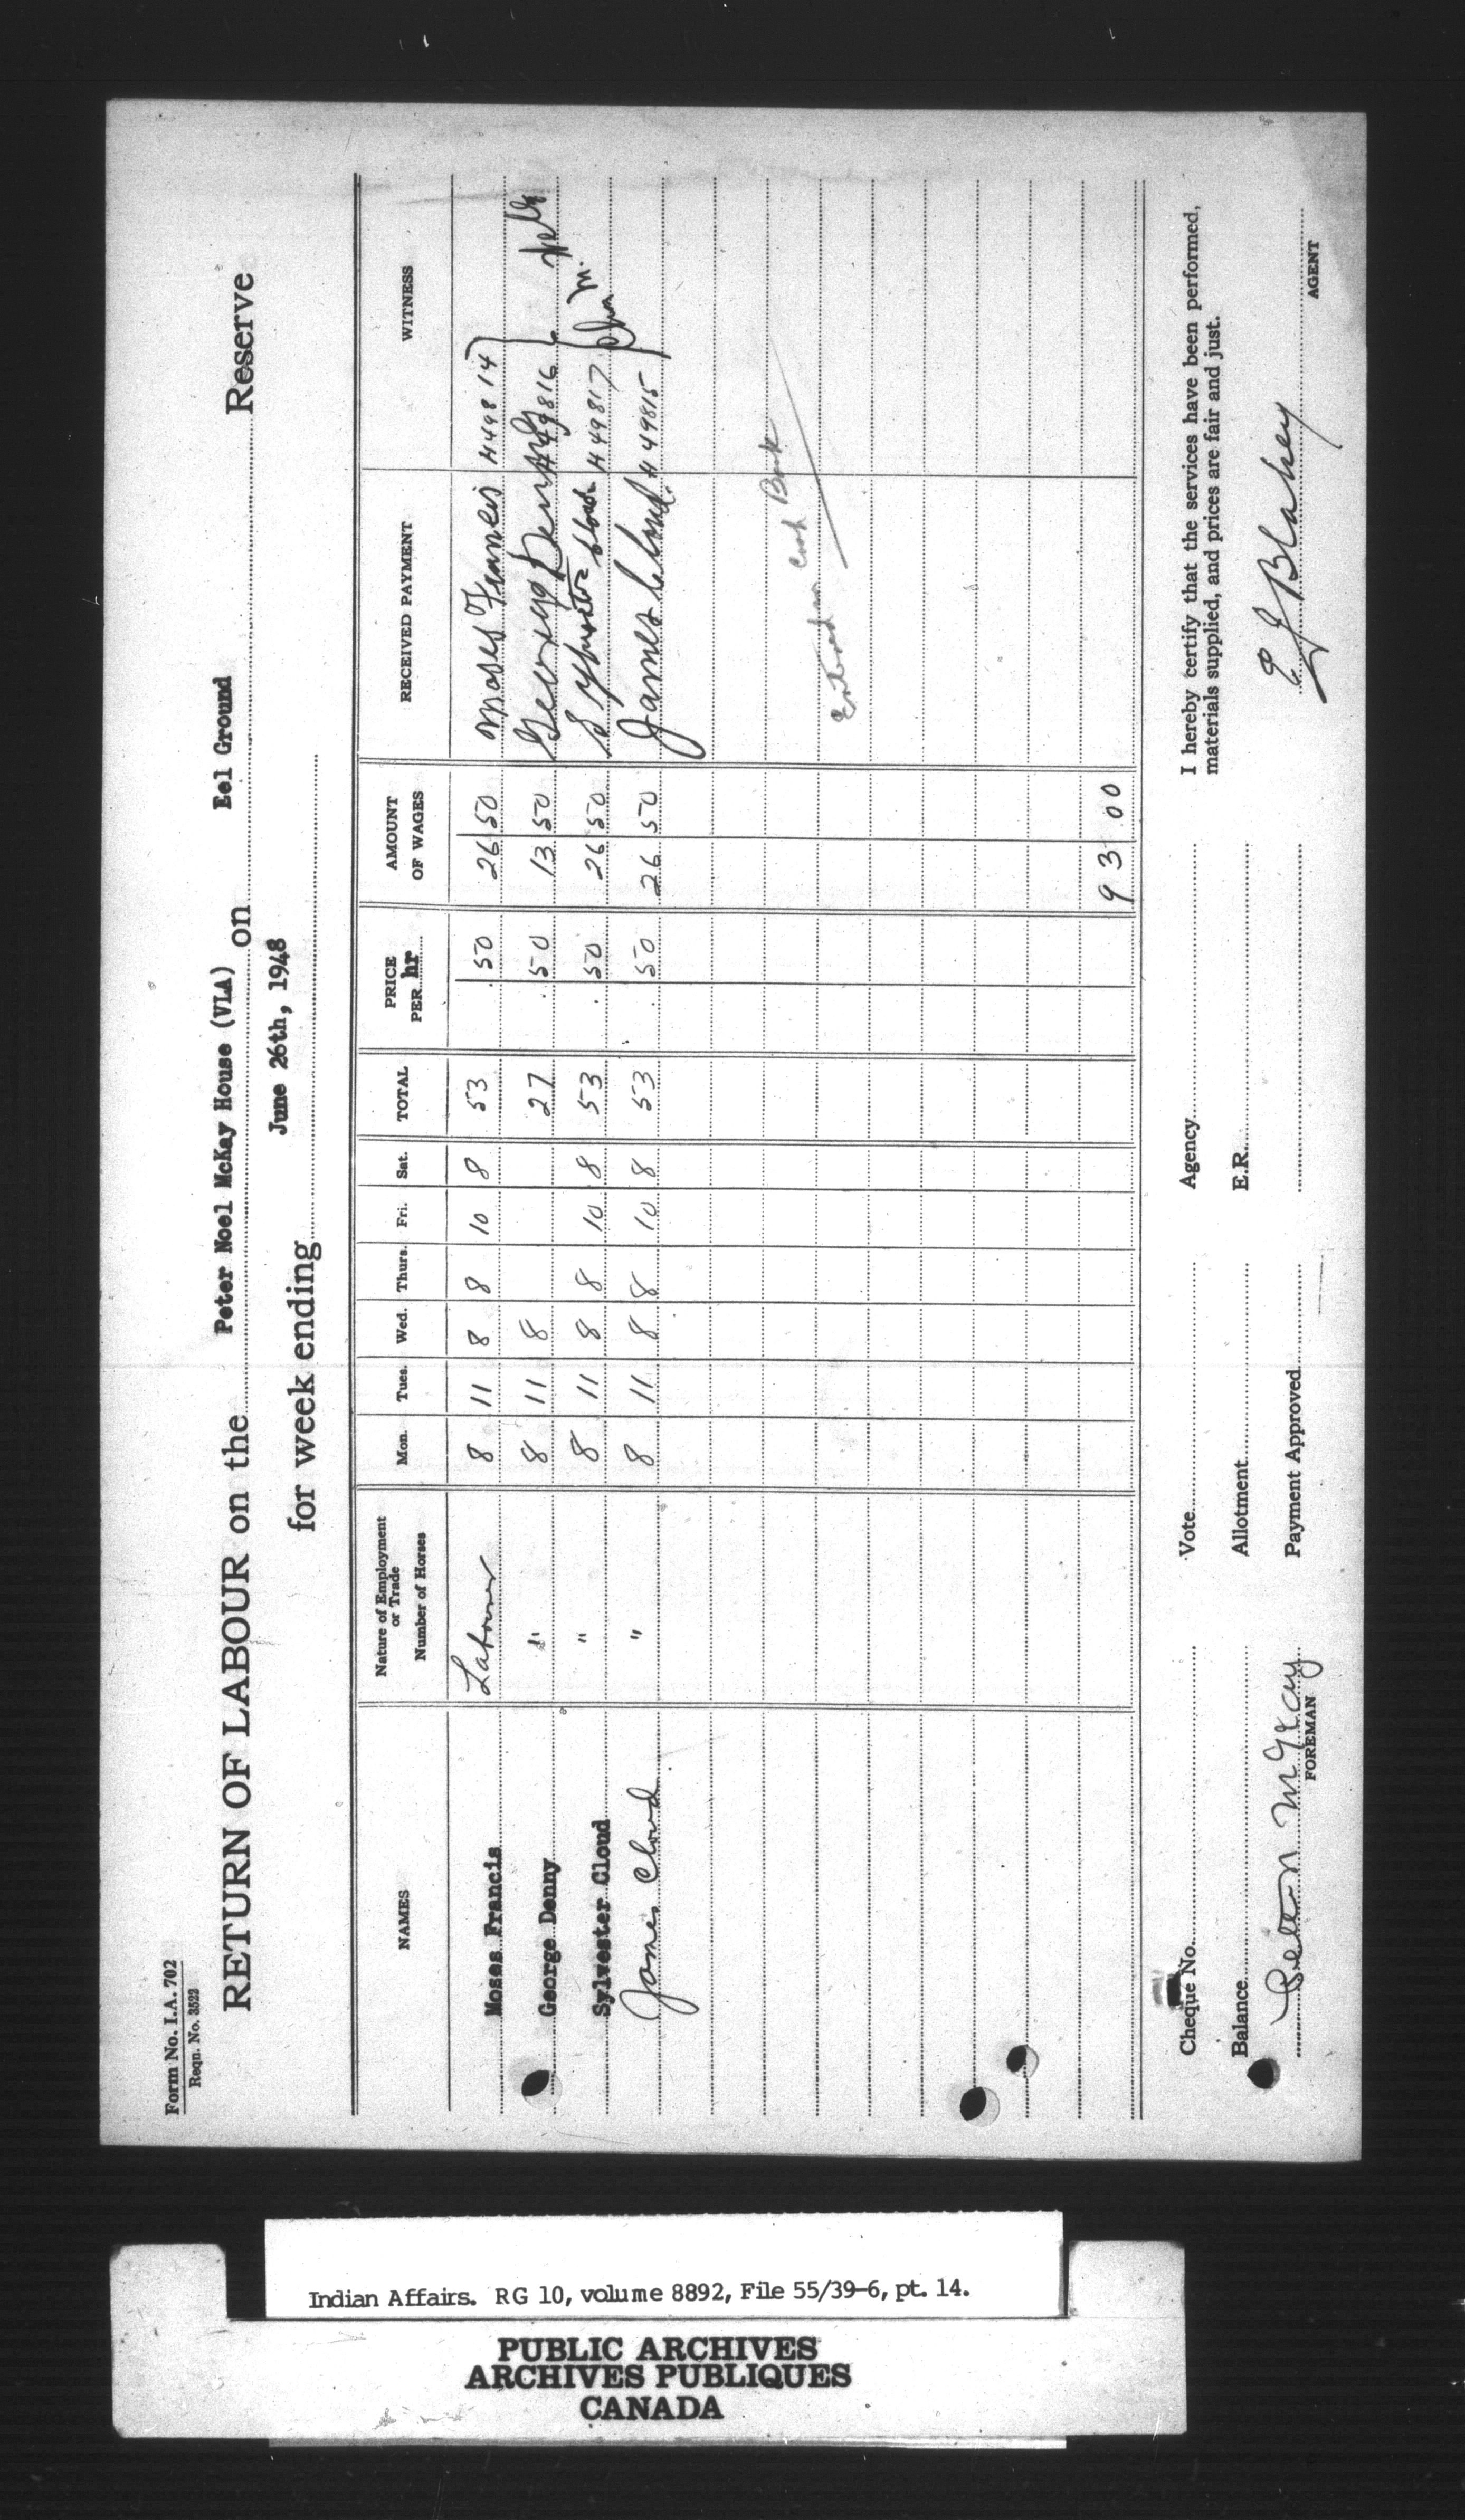 Form No. I.A. 702
Reqn. No. 3522
RETURN OF LABOUR on the Peter Noel McKay House (VLA) on Eel Ground Reserve
for week ending June 26th, 1948
NAMES Nature of Employment or Trade Number of Horses Mon. Tues. Wed. Thurs. Fri. Sat. TOTAL PRICE PER hr AMOUNT OF WAGES RECEIVED PAYMENT WITNESS
Moses Francis Labourer 8 11 8 8 10 8 53 .50 26 50 Moses Francis 449814
George Denny " 8 11 8 27 .50 13 50 George Denny 449816
Sylvester Cloud " 8 11 8 8 10 8 53 .50 26 50 Sylvester Cloud 449817
James Cloud " 8 11 8 8 10 8 53 .50 26 50 James Cloud 449815
Entered in Cash Book
93 00
Cheque No. Vote Agency I hereby certify that the services have been performed,
materials supplied, and prices are fair and just.
Balance Allotment E.R.
Peter McKay Payment Approved E J Blakey
FOREMAN AGENT
Indian Affairs. RG 10, volume 8892, File 55/39-6, pt. 14.
PUBLIC ARCHIVES
ARCHIVES PUBLIQUES
CANADA